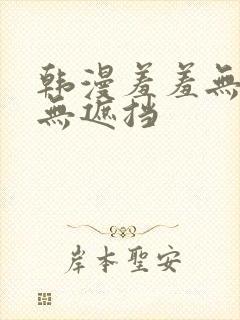 韩漫羞羞無
無遮挡
岸本聖安